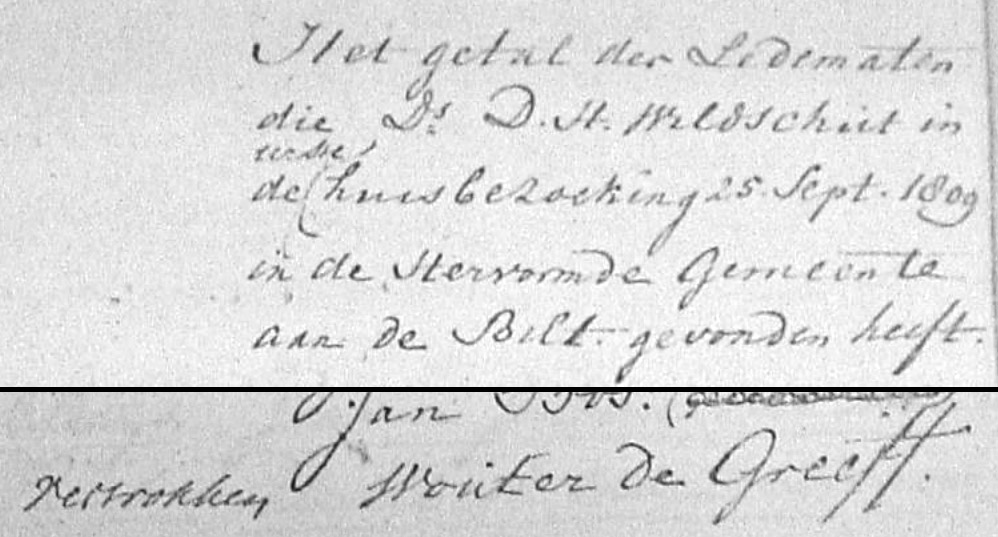 Het getal der Ledematen
die Ds. D. H. Wildschut in
eerste
de huisbezoeking 25 Sept. 1809
in de Hervormde Gemeente
aan de Bilt gevonden heeft.
Jan
vertrokken Wouter de Greeff.